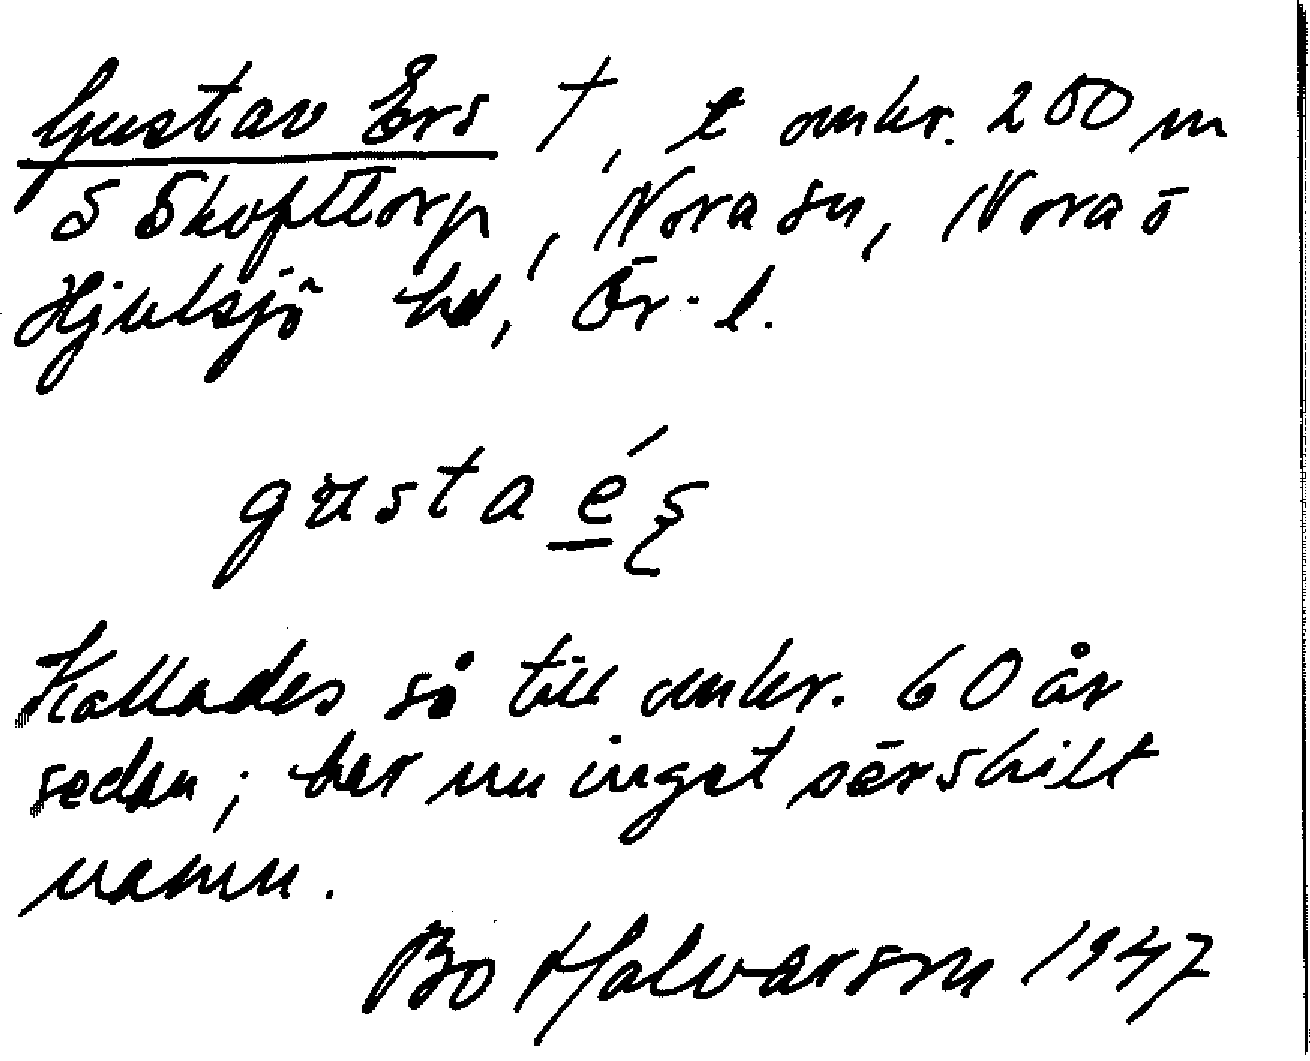 Gustav Ers †, t omkr. 200 m
S Skofttorp, Nora sn, Nora o
Hjulsjö hd, Ör. l.
gusta é ʂ
Kallades så till omkr. 60 år
sedan; har nu inget särskilt
namn.
Bo Halvarson 1947